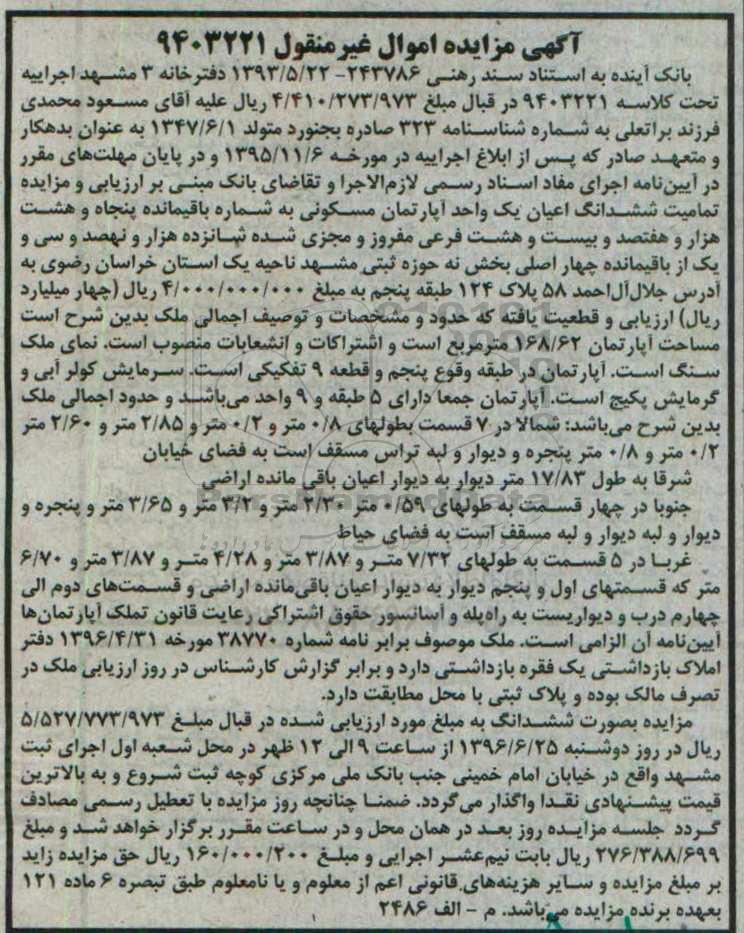 آگهی مزایده اموال غیرمنقول ۹۴۰۳۲۲۱
بانک آینده به استناد سند رهنی ۲۴۳۷۸۶- ۱۳۹۳/۵/۲۲ دفترخانه ۳ مشهد اجراییه
تحت کلاسه ۹۴۰۳۲۲۱ در قبال مبلغ ۴/۴۱۰/۲۷۳/۹۷۳ ریال علیه آقای مسعود محمدی
فرزند براتعلی به شماره شناسنامه ۳۲۳ صادره بجنورد متولد ۱۳۴۷/۶/۱ به عنوان بدهکار
و متعهد صادر که پس از ابلاغ اجراییه در مورخه ۱۳۹۵/۱۱/۶ و در پایان مهلت‌های مقرر
در آیین‌نامه اجرای مفاد اسناد رسمی لازم‌الاجرا و تقاضای بانک مبنی بر ارزیابی و مزایده
تمامیت ششدانگ اعیان یک واحد آپارتمان مسکونی به شماره باقیمانده پنجاه و هشت
هزار و هفتصد و بیست و هشت فرعی مفروز و مجزی شده شانزده هزار و نهصد و سی و
یک از باقیمانده چهار اصلی بخش نه حوزه ثبتی مشهد ناحیه یک استان خراسان رضوی به
آدرس جلال‌آل‌احمد ۵۸ پلاک ۱۲۴ طبقه پنجم به مبلغ ۴/۰۰۰/۰۰۰/۰۰۰ ریال (چهار میلیارد
ریال) ارزیابی و قطعیت یافته که حدود و مشخصات و توصیف اجمالی ملک بدین شرح است
مساحت آپارتمان ۱۶۸/۶۲ مترمربع است و اشتراکات و انشعابات منصوب است. نمای ملک
سنگ است. آپارتمان در طبقه وقوع پنجم و قطعه ۹ تفکیکی است. سرمایش کولر آبی و
گرمایش پکیج است. آپارتمان جمعا دارای ۵ طبقه و ۹ واحد می‌باشد و حدود اجمالی ملک
بدین شرح می‌باشد: شمالا در ۷ قسمت بطولهای ۰/۸ متر و ۰/۲ متر و ۲/۸۵ متر و ۲/۶۰ متر
۰/۲ متر و ۰/۸ متر پنجره و دیوار و لبه تراس مسقف است به فضای خیابان
شرقا به طول ۱۷/۸۳ متر دیوار به دیوار اعیان باقی مانده اراضی
جنوبا در چهار قسمت به طولهای ۰/۵۹ متر ۲/۳۰ متر و ۳/۲ متر و ۳/۶۵ متر و پنجره و
دیوار و لبه دیوار و لبه مسقف است به فضای حیاط
غربا در ۵ قسمت به طولهای ۷/۳۲ متر و ۳/۸۷ متر و ۴/۲۸ متر و ۳/۸۷ متر و ۶/۷۰
متر که قسمتهای اول و پنجم دیوار به دیوار اعیان باقی‌مانده اراضی و قسمت‌های دوم الی
چهارم درب و دیواریست به راه‌پله و آسانسور حقوق اشتراکی رعایت قانون تملک آپارتمان‌ها
آیین‌نامه آن الزامی است. ملک موصوف برابر نامه شماره ۳۸۷۷۰ مورخه ۱۳۹۶/۴/۳۱ دفتر
املاک بازداشتی یک فقره بازداشتی دارد و برابر گزارش کارشناس در روز ارزیابی ملک در
تصرف مالک بوده و پلاک ثبتی با محل مطابقت دارد.
مزایده بصورت ششدانگ به مبلغ مورد ارزیابی شده در قبال مبلغ ۵/۵۲۷/۷۷۳/۹۷۳
ریال در روز دوشنبه ۱۳۹۶/۶/۲۵ از ساعت ۹ الی ۱۲ ظهر در محل شعبه اول اجرای ثبت
مشهد واقع در خیابان امام خمینی جنب بانک ملی مرکزی کوچه ثبت شروع و به بالاترین
قیمت پیشنهادی نقدا واگذار می‌گردد. ضمنا چنانچه روز مزایده با تعطیل رسمی مصادف
گردد جلسه مزایده روز بعد در همان محل و در ساعت مقرر برگزار خواهد شد و مبلغ
۲۷۶/۳۸۸/۶۹۹ ریال بابت نیم‌عشر اجرایی و مبلغ ۱۶۰/۰۰۰/۲۰۰ ریال حق مزایده زاید
بر مبلغ مزایده و سایر هزینه‌های قانونی اعم از معلوم و یا نامعلوم طبق تبصره ۶ ماده ۱۲۱
بعهده برنده مزایده می‌باشد. م - الف ۲۴۸۶